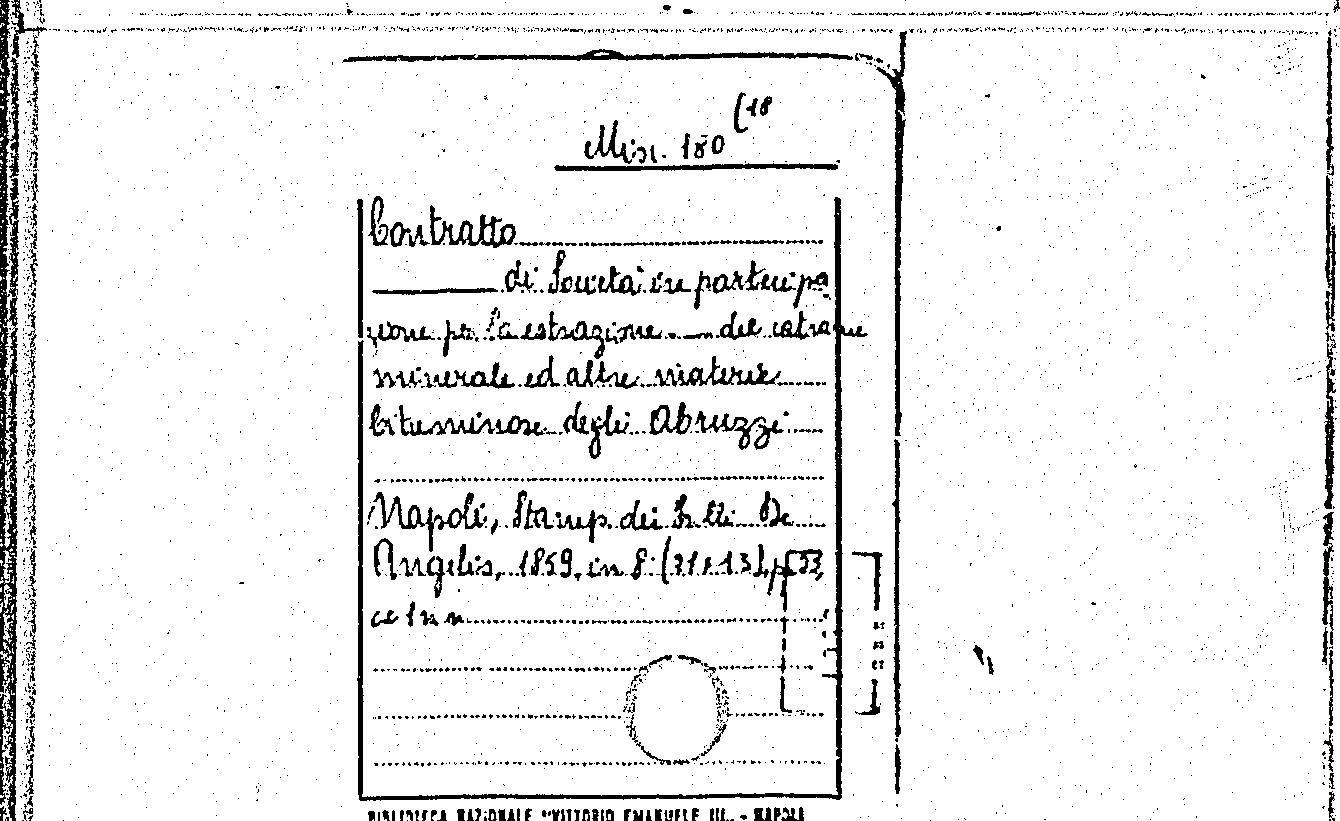 Misc. 180 (18
Contratto
di Società in partecipa
zione per la estrazione — del catrame
minerale ed altre materie
bituminose degli Abruzzi
Napoli, Stamp. dei F.lli De
Angelis, 1859, in 8° (21 x 13), p. 53,
BIBLIOTECA NAZIONALE "VITTORIO EMANUELE III" - NAPOLI